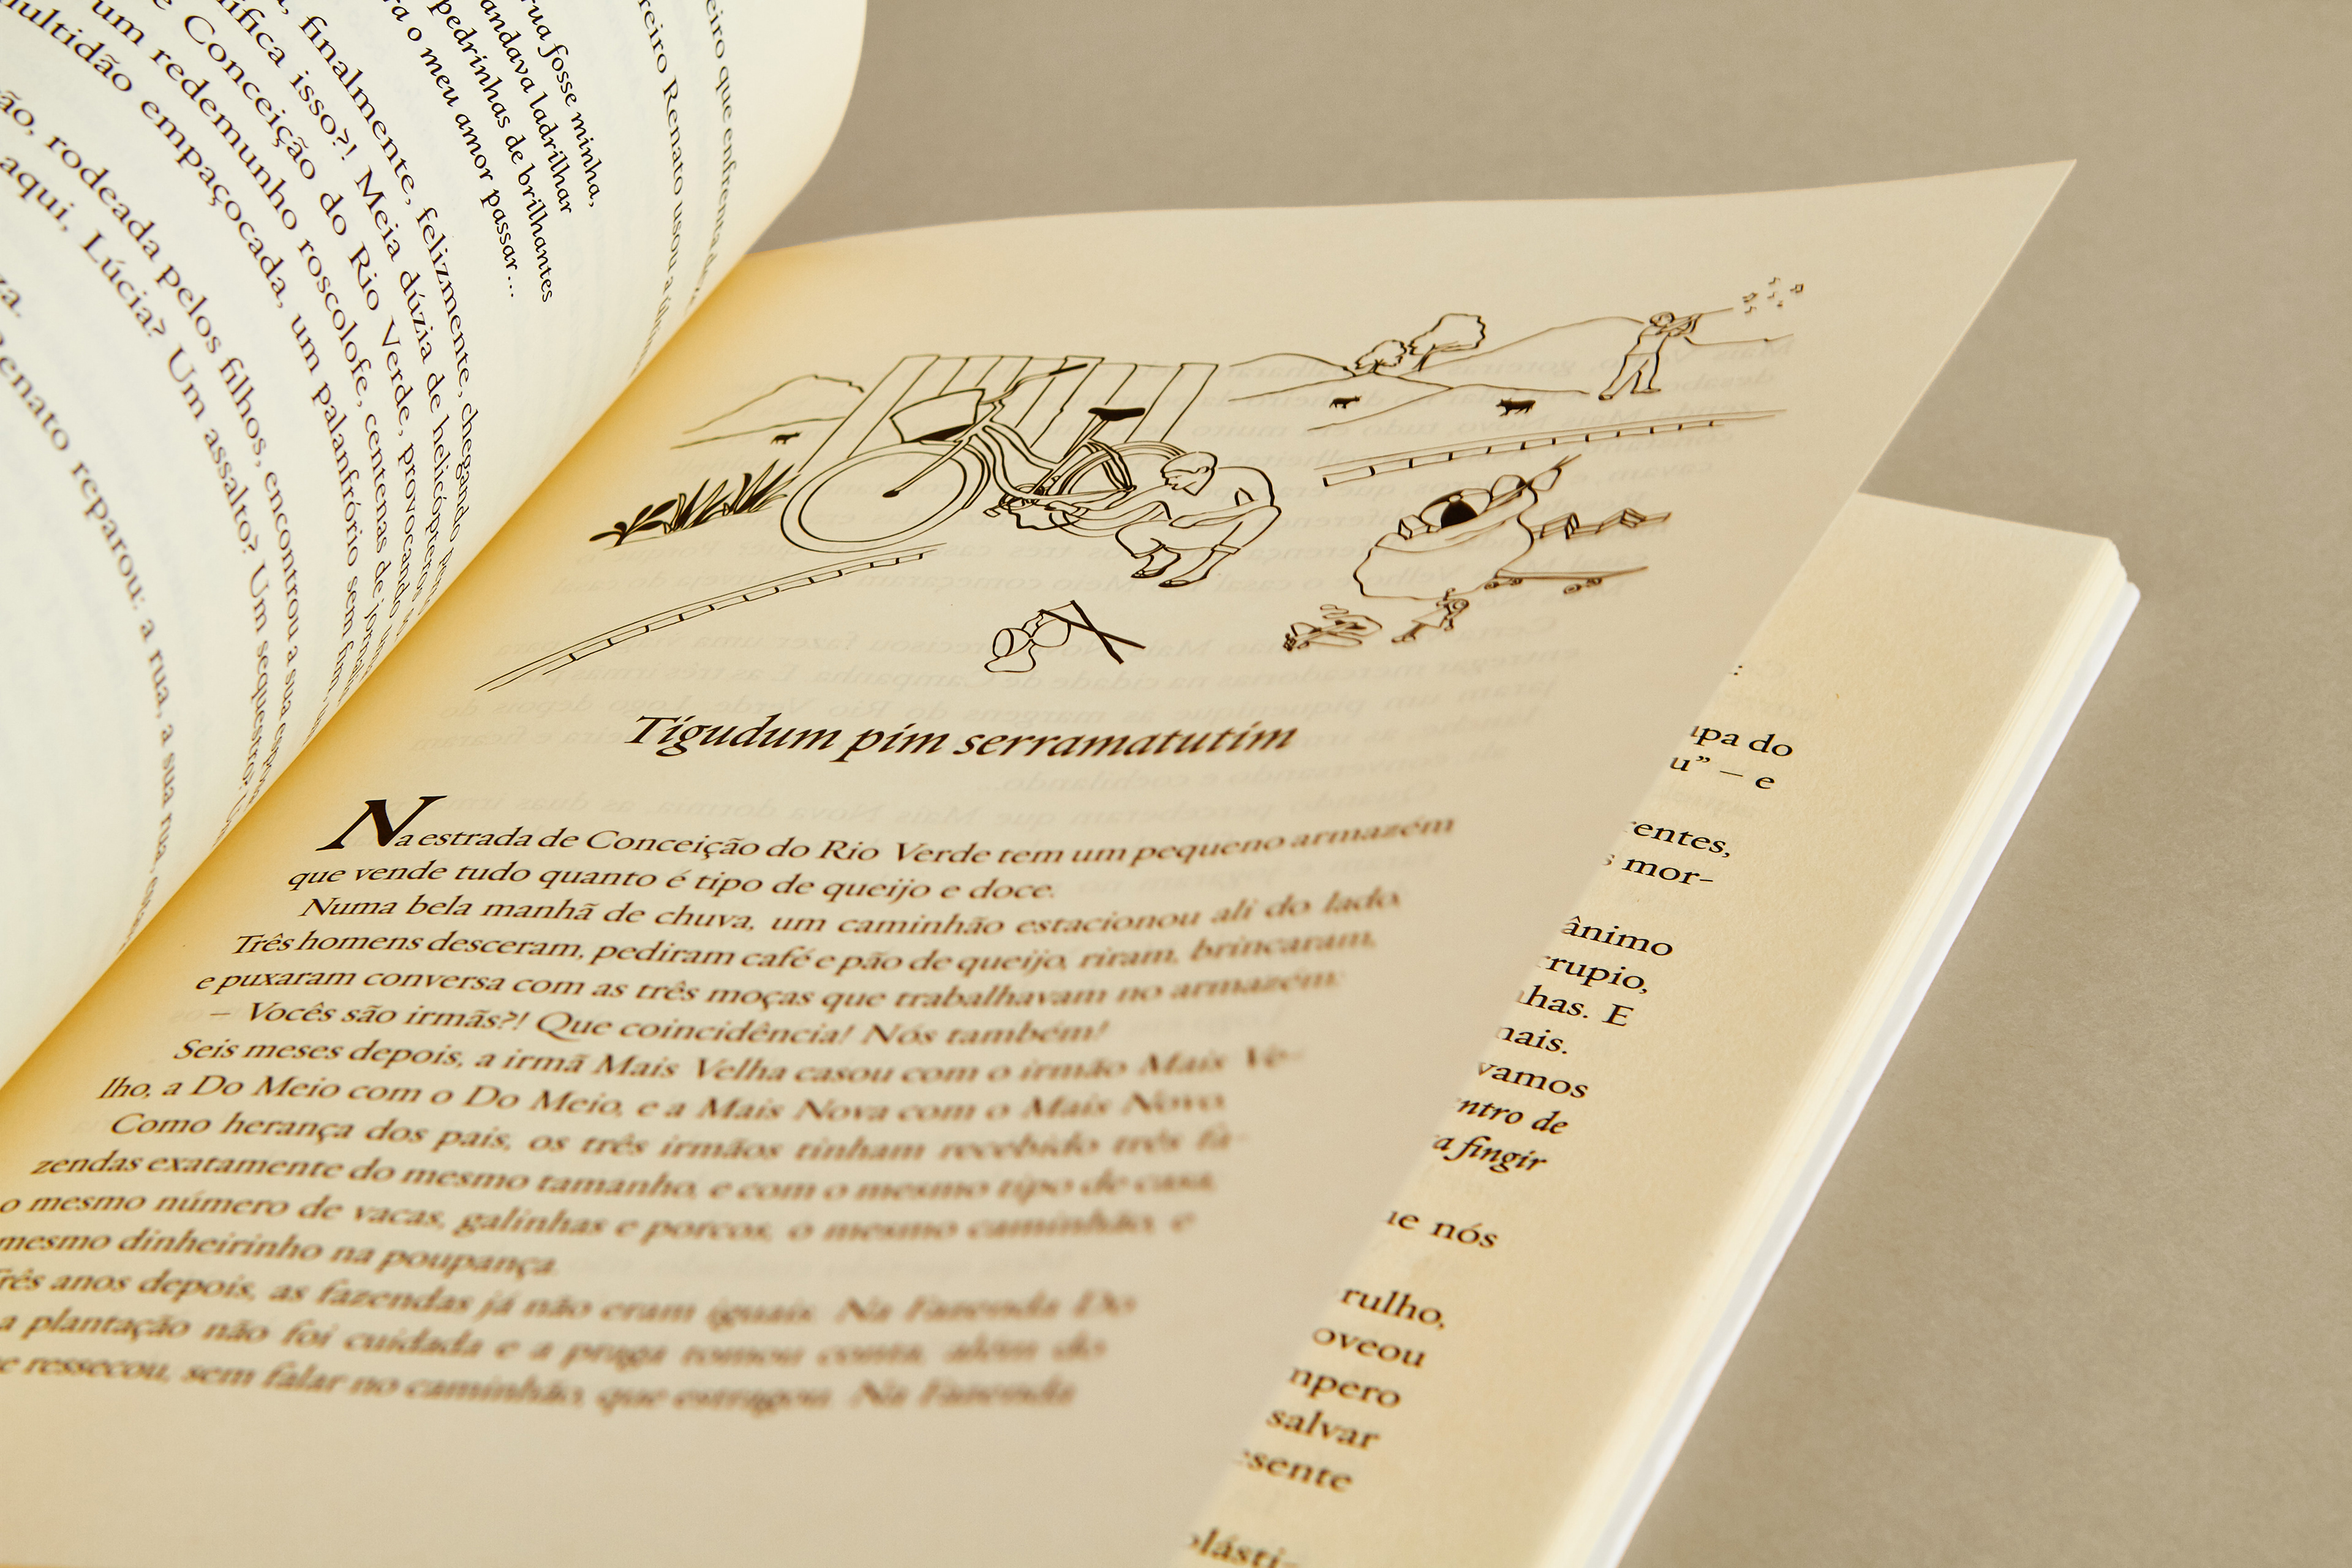 eiro que enfrenta
reiro Renato usou a
rua fosse minha,
andava ladrilhar
pedrinhas de brilhantes
o meu amor passar...
finalmente, felizmente, chegando
ifica isso?! Meia dúzia de helicópteros
e Conceição do Rio Verde, provocando
um redemunho roscolofe, centenas de
multidão empaçocada, um palanfrório sem fim
rodeada pelos filhos, encontrou a sua
aqui, Lúcia? Um assalto? Um sequestro?
enato reparou: a rua, a sua rua,
Tigudum pim serramatutim
Na estrada de Conceição do Rio Verde tem um pequeno armazém
que vende tudo quanto é tipo de queijo e doce.
Numa bela manhã de chuva, um caminhão estacionou ali do lado.
Três homens desceram, pediram café e pão de queijo, riram, brincaram,
e puxaram conversa com as três moças que trabalhavam no armazém:
– Vocês são irmãs?! Que coincidência! Nós também!
Seis meses depois, a irmã Mais Velha casou com o irmão Mais Ve-
lho, a Do Meio com o Do Meio, e a Mais Nova com o Mais Novo.
Como herança dos pais, os três irmãos tinham recebido três fa-
zendas exatamente do mesmo tamanho, e com o mesmo tipo de casa,
o mesmo número de vacas, galinhas e porcos, o mesmo caminhão, e
mesmo dinheirinho na poupança.
Três anos depois, as fazendas já não eram iguais. Na Fazenda Do
a plantação não foi cuidada e a praga tomou conta, além do
e ressecou, sem falar no caminhão, que estragou. Na Fazenda
apa do
u” – e
entes,
mor-
ânimo
rrupio,
has. E
mais.
vamos
ntro de
a fingir
ue nós
rulho,
oveou
mpero
salvar
esente
plásti-